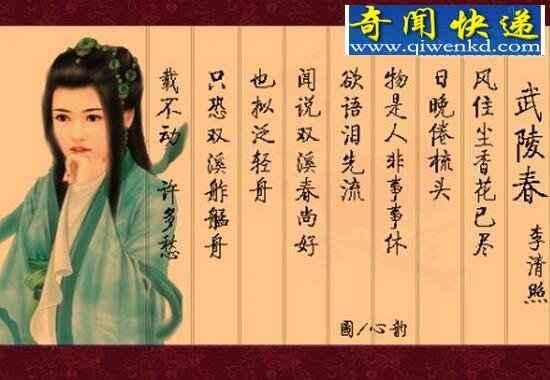 奇闻快递
www.qiwenkd.com
武陵春
李清照
风住尘香花已尽
日晚倦梳头
物是人非事事休
欲语泪先流
闻说双溪春尚好
也拟泛轻舟
只恐双溪舴艋舟
载不动 许多愁
圖/心韵